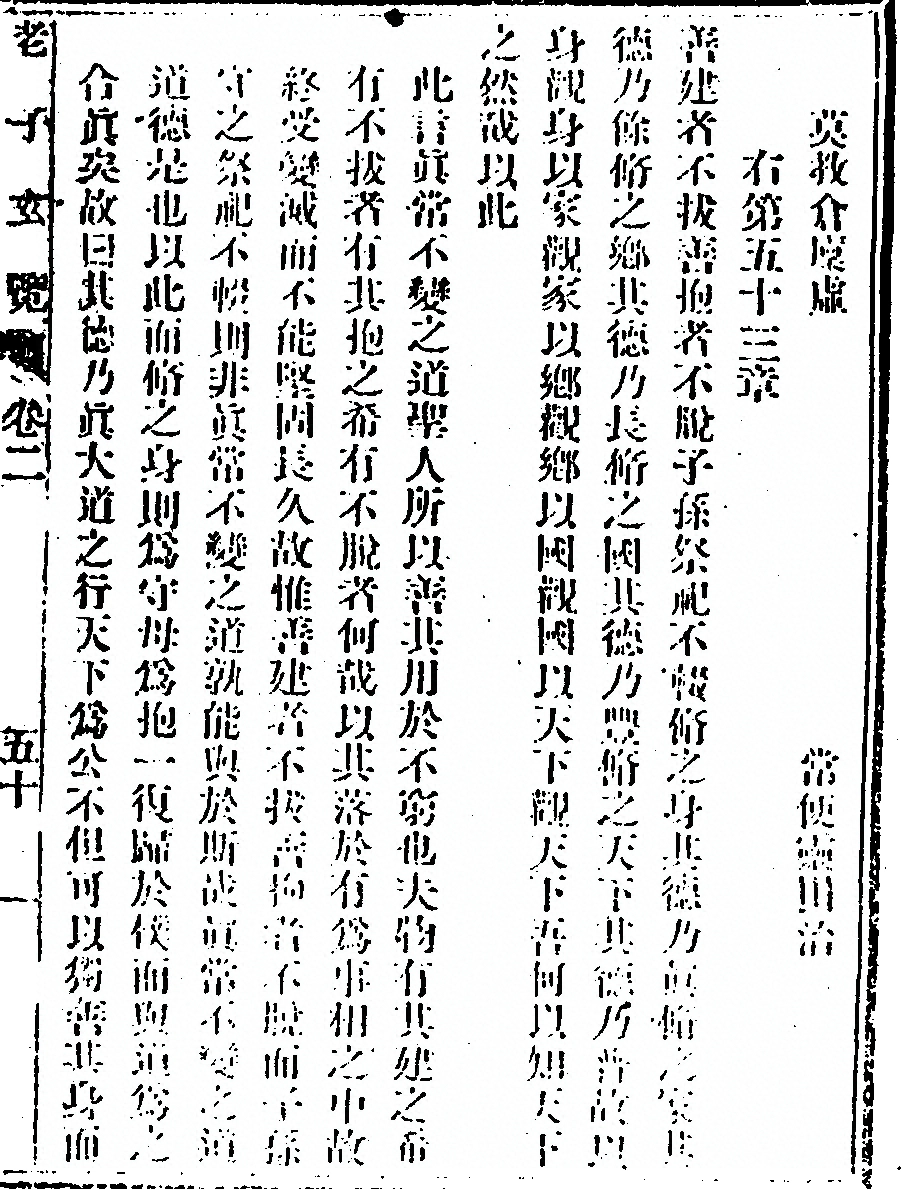 莫教倉廩虛　常使靈田治
右第五十三章
善建者不拔善抱者不脫子孫祭祀不輟脩之身其德乃眞脩之家其
德乃餘脩之鄉其德乃長脩之國其德乃豐脩之天下其德乃普故以
身觀身以家觀家以鄉觀鄉以國觀國以天下觀天下吾何以知天下
之然哉以此
此言眞常不變之道聖人所以善其用於不窮也夫物有其建之希
有不拔者有其抱之希有不脫者何哉以其落於有爲事相之中故
終受變滅而不能堅固長久故惟善建者不拔善抱者不脫而子孫
守之祭祀不輟則非眞常不變之道孰能與於斯哉眞常不變之道
道德是也以此而脩之身則爲守母爲抱一復歸於樸而與道爲之
合眞矣故曰其德乃眞大道之行天下爲公不但可以獨善其身而
老子玄覽　卷二　五十一